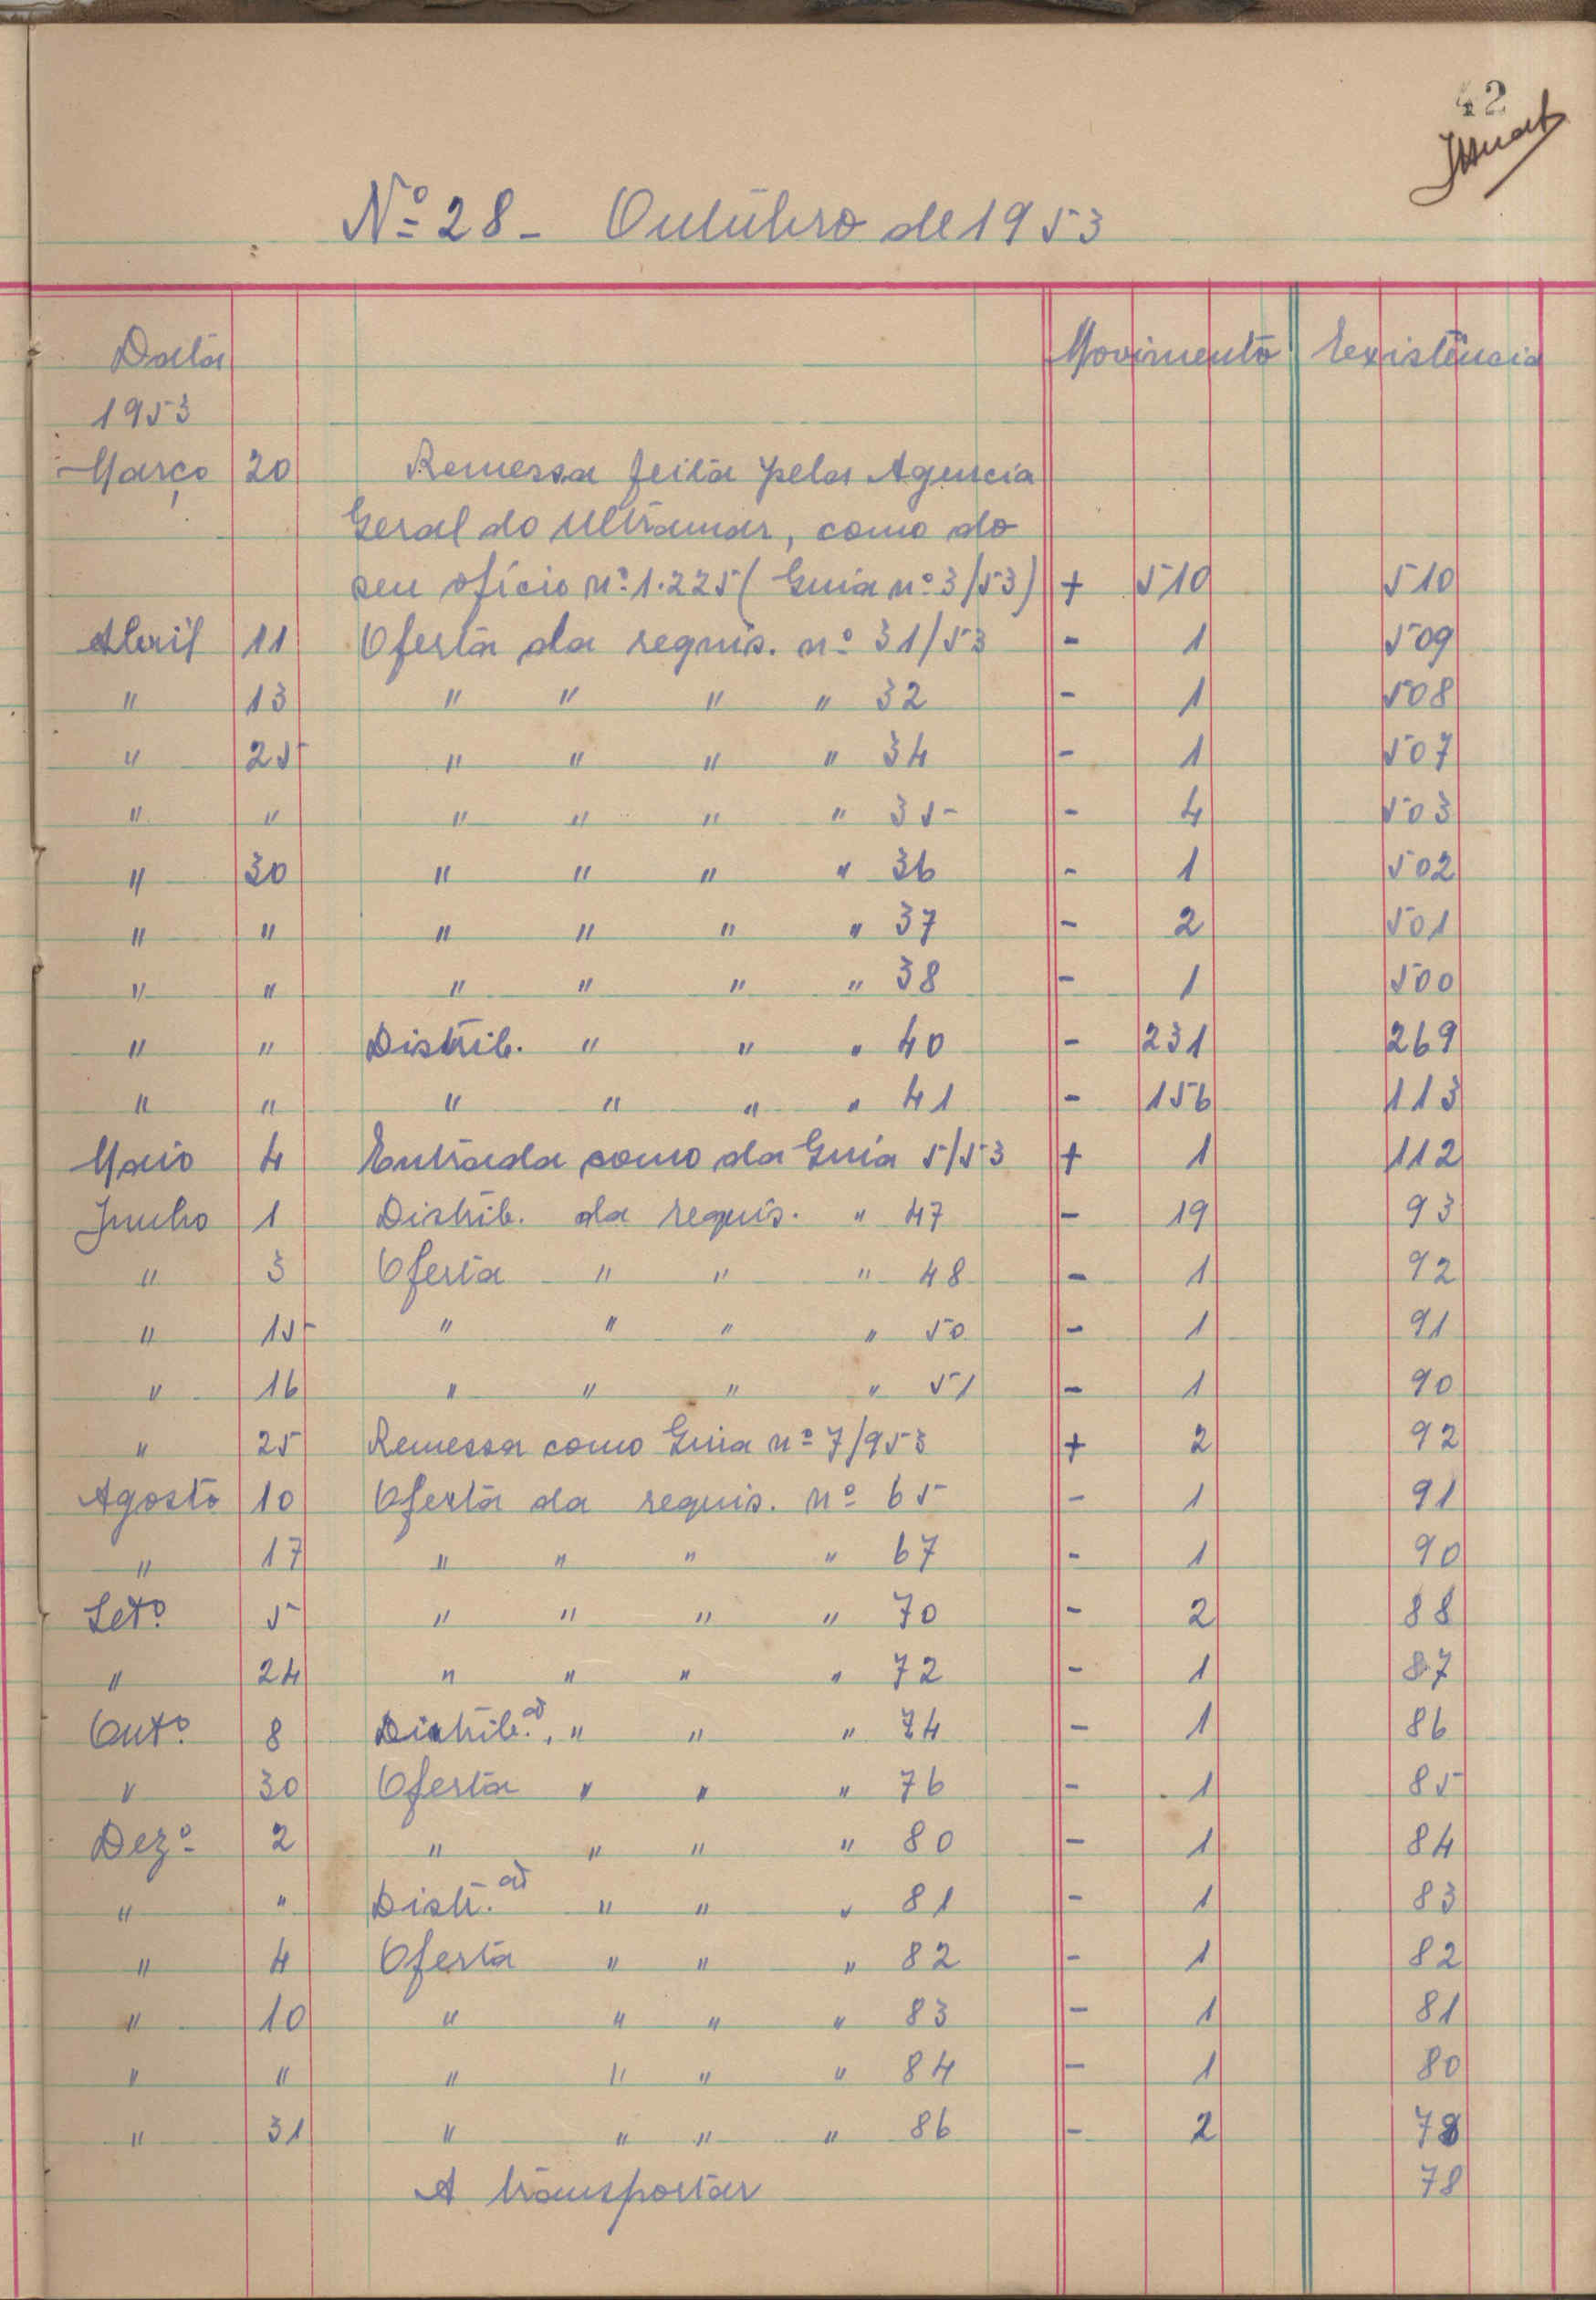 42
Nº 28 - Outúbro de 1953
Data Movimento Existência
1953
Março 20 Remessa feita pela Agencia
Geral do Ultramar, como do
seu ofício nº 1.225 ( Guia nº 3/53) + 510 510
Abril 11 Oferta da requis. nº 31/53 - 1 509
" 13 " " " " 32 - 1 508
" 25 " " " " 34 - 1 507
" " " " " " 35 - 4 503
" 30 " " " " 36 - 1 502
" " " " " " 37 - 2 501
" " " " " " 38 - 1 500
" " Distrib. " " " 40 - 231 269
" " " " " " 41 - 156 113
Maio 4 Entrada como da Guia 5/53 + 1 112
Junho 1 Distrib. da requis. " 47 - 19 93
" 3 Oferta " " " 48 - 1 92
" 15 " " " " 50 - 1 91
" 16 " " " " 51 - 1 90
" 25 Remessa como Guia nº 7/953 + 2 92
Agosto 10 Oferta da requis. nº 65 - 1 91
" 17 " " " " 67 - 1 90
Setº 5 " " " " 70 - 2 88
" 24 " " " " 72 - 1 87
Outº 8 Distrib. " " " 74 - 1 86
" 30 Oferta " " " 76 - 1 85
Dezº 2 " " " " 80 - 1 84
" " Distr. " " " 81 - 1 83
" 4 Oferta " " " 82 - 1 82
" 10 " " " " 83 - 1 81
" " " " " " 84 - 1 80
" 31 " " " " 86 - 2 78
A transportar 78